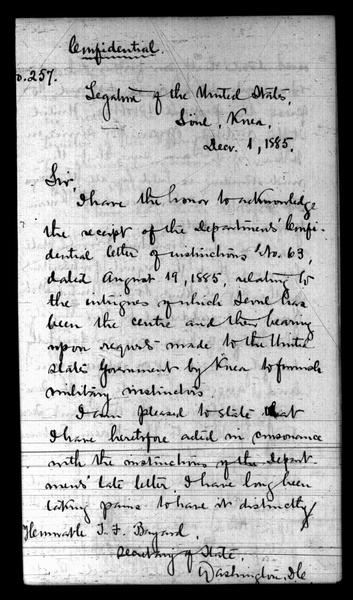 Confidential.
No. 257.
Legation of the United States,
Söul, Korea,
Decr. 1, 1885.
Sir,
I have the honor to acknowledge
the receipt of the Departments' Confi-
dential letter of instructions No. 63,
dated August 19, 1885, relating to
the intrigues of which Seoul has
been the centre and their bearing
upon requests made to the United
States Government by Korea to furnish
military instructors.
I am pleased to state that
I have heretofore acted in consonance
with the instructions of the Depart-
ments' late letter, I have long been
taking pains to have it distinctly
Honorable T. F. Bayard,
Secretary of State,
Washington, D.C.